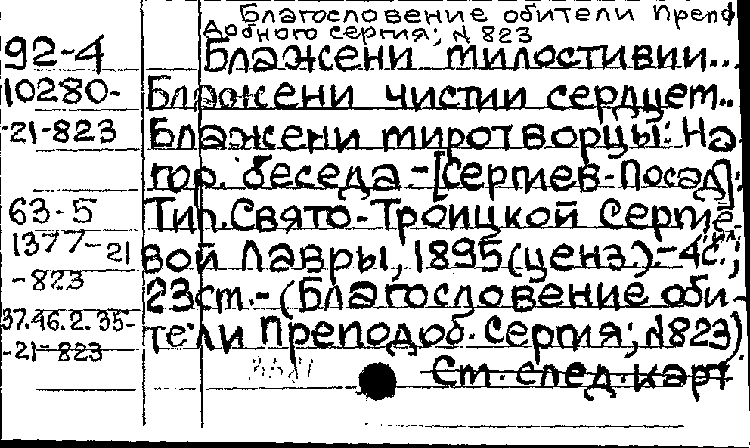 Благословение обители Препо
добного Сергия; N 823
92-4 Блажени милостивии...
10280- Блажени чистии сердцем..
-21-823 Блажени миротворцы: На
гор. беседа.-[Сергиев-Посад]:
63-5 Тип. Свято-Троицкой Сергие
1377-21 вой Лавры, 1895(ценз.)-4с.;
-823 23см.-(Благословение оби-
37.46.2.35- тели Преподоб. Сергия; N823)
-21-823
См. след. карт